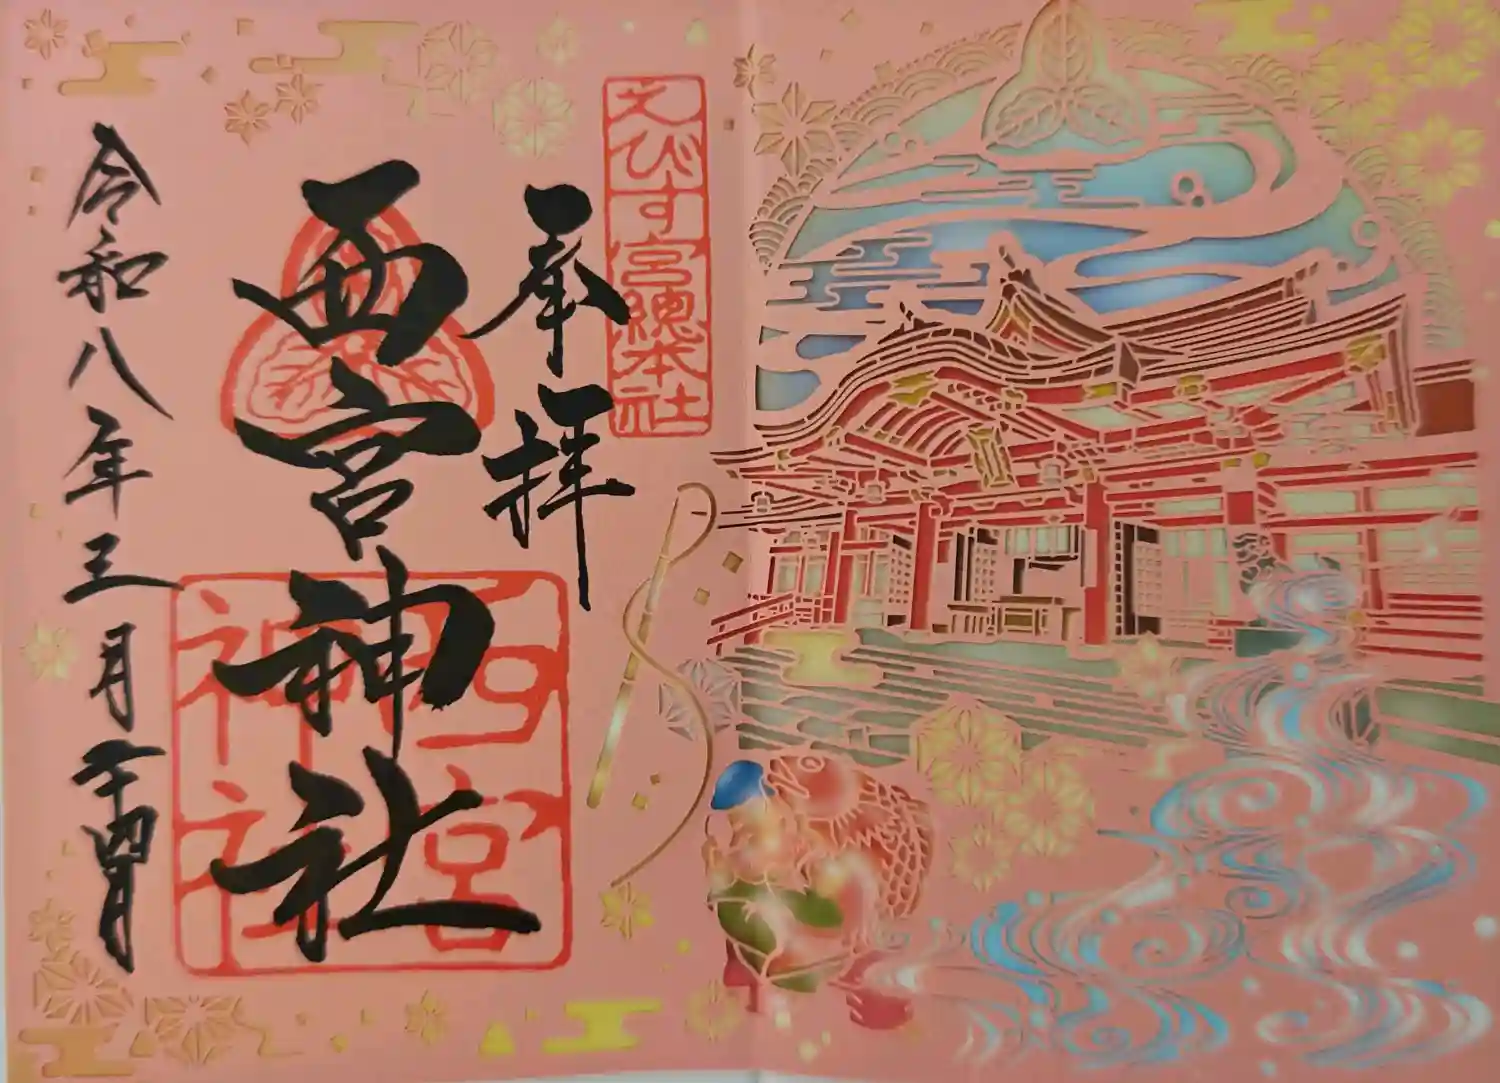 えびす宮總本社
奉拝
西宮神社
西宮
神社
令和八年三月二十四日